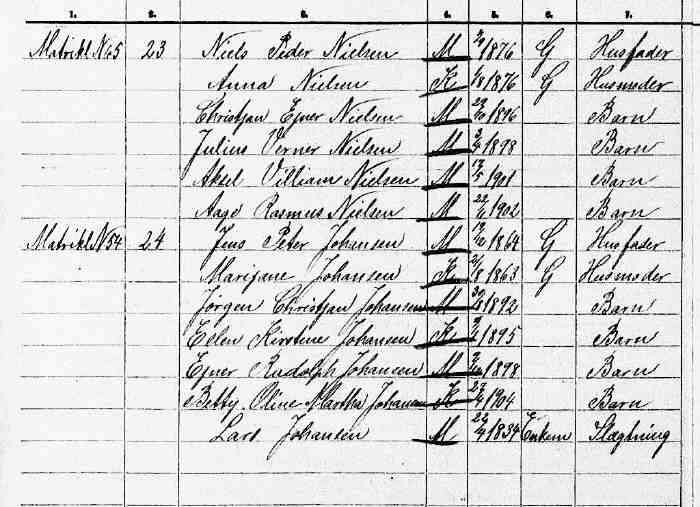 1. 2. 3. 4. 5. 6. 7.
Matrikl N 65 23 Niels Peder Nielsen M 1876 G Husfader
Anna Nielsen K 1876 G Husmoder
Christjan Ejner Nielsen M 29/10 1896 Barn
Julius Verner Nielsen M 1898 Barn
Aksel Villiam Nielsen M 1901 Barn
Aage Rasmus Nielsen M 1902 Barn
Matrikl N 54 24 Jens Peter Johansen M 19/10 1864 G Husfader
Marijane Johansen K 1863 G Husmoder
Jørgen Christjan Johansen M 1892 Barn
Ellen Kirstine Johansen K 1895 Barn
Ejner Rudolph Johansen M 1898 Barn
Betty Oline Martha Johansen K 1904 Barn
Lars Johansen M 1834 Enkem Slægtning